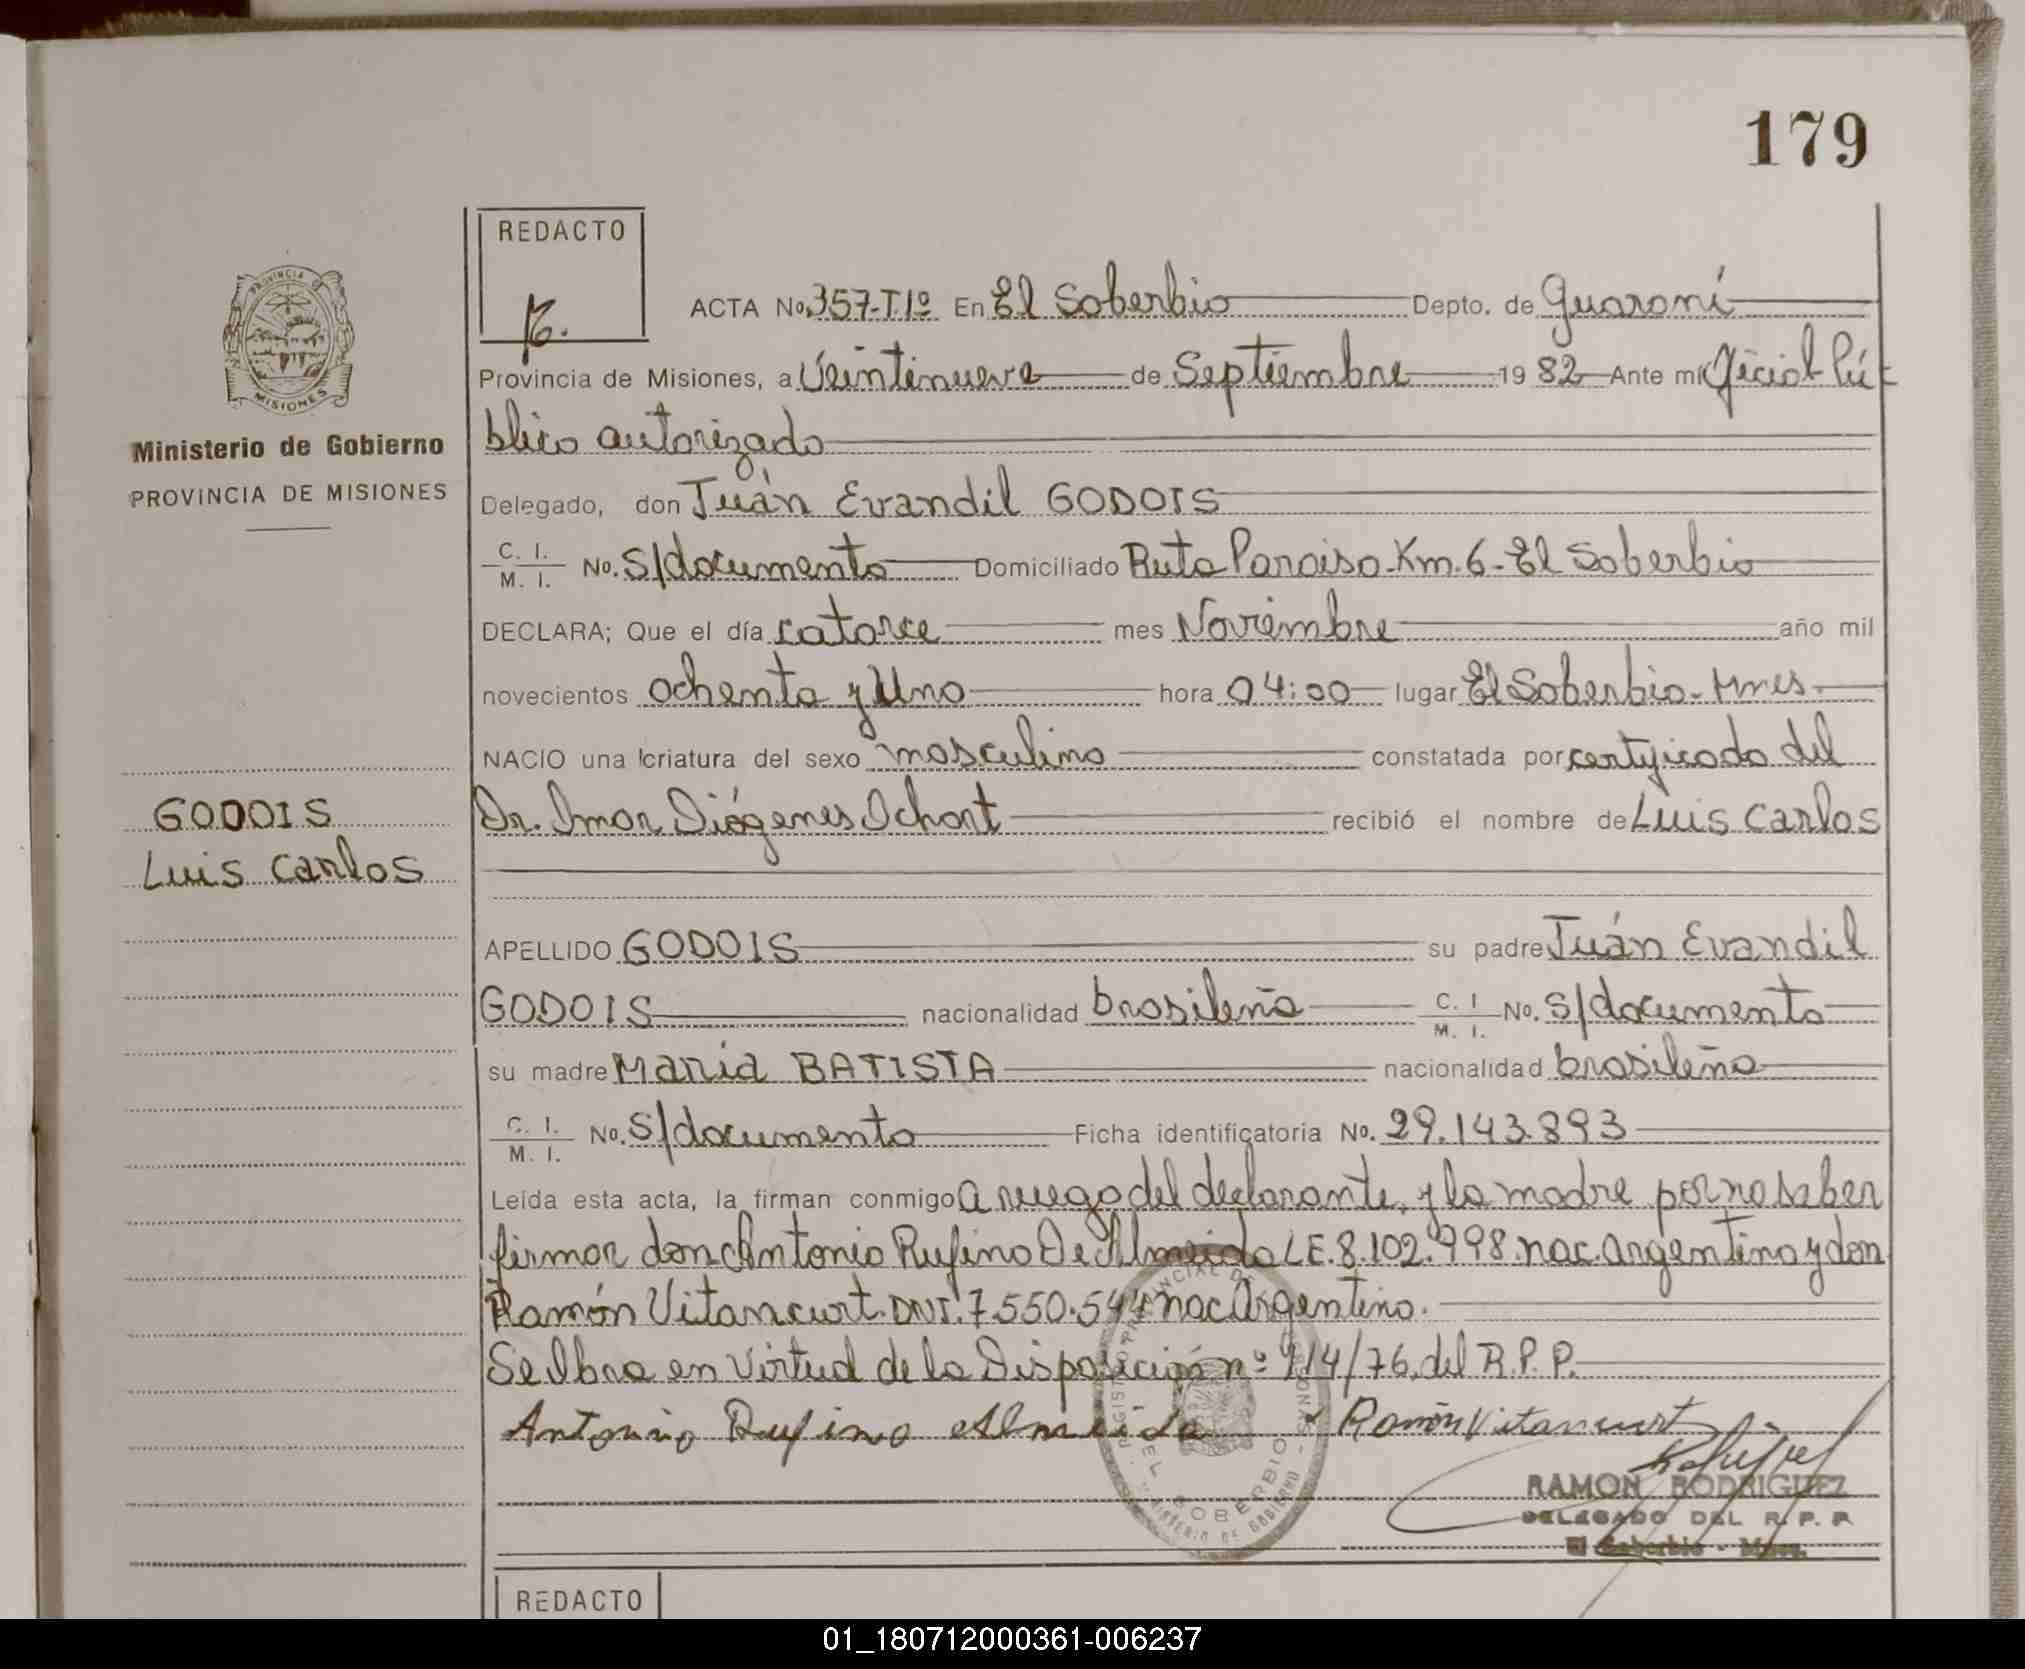 179
REDACTO
ACTA No. 357-T.1º En El Soberbio Depto. de Guaraní
Provincia de Misiones, a Veintinueve de Septiembre 19 82 Ante mi Oficial Pú
blico autorizado
Delegado, don Juán Evandil GODOIS
C. I. M. I. No. S/documento Domiciliado Ruta Paraiso-Km.6-El Soberbio
DECLARA; Que el día catorce mes Noviembre año mil
novecientos ochenta y Uno hora 04:00 lugar El Soberbio-Mnes.
NACIO una criatura del sexo masculino constatada por certificado del
Dr. Imar Diógenes Ochart recibió el nombre de Luis Carlos
APELLIDO GODOIS su padre Juán Evandil
GODOIS nacionalidad brasileña C. I. M. I. No. S/documento
su madre María BATISTA nacionalidad brasileña
C. I. M. I. No. S/documento Ficha identificatoria No. 29.143.893
Leída esta acta, la firman conmigo a ruego del declarante, y la madre por no saber
firmar don Antonio Rufino De Almeida L.E. 8.102.998. nac. argentino y don
Ramón Vitancurt. DNI. 7.550.544 nac Argentino.
Se Ibra en Virtud de la Disposición nº 914/76. del R.P.P.
Antonio Rufino Almeida Ramón Vitancurt
RAMON RODRIGUEZ
DELEGADO DEL R. P. P.
El Soberbio - Mnes.
REDACTO
PROVINCIA
MISIONES
Ministerio de Gobierno
PROVINCIA DE MISIONES
GODOIS
Luis Carlos
EL SOBERBIO
01_180712000361-006237